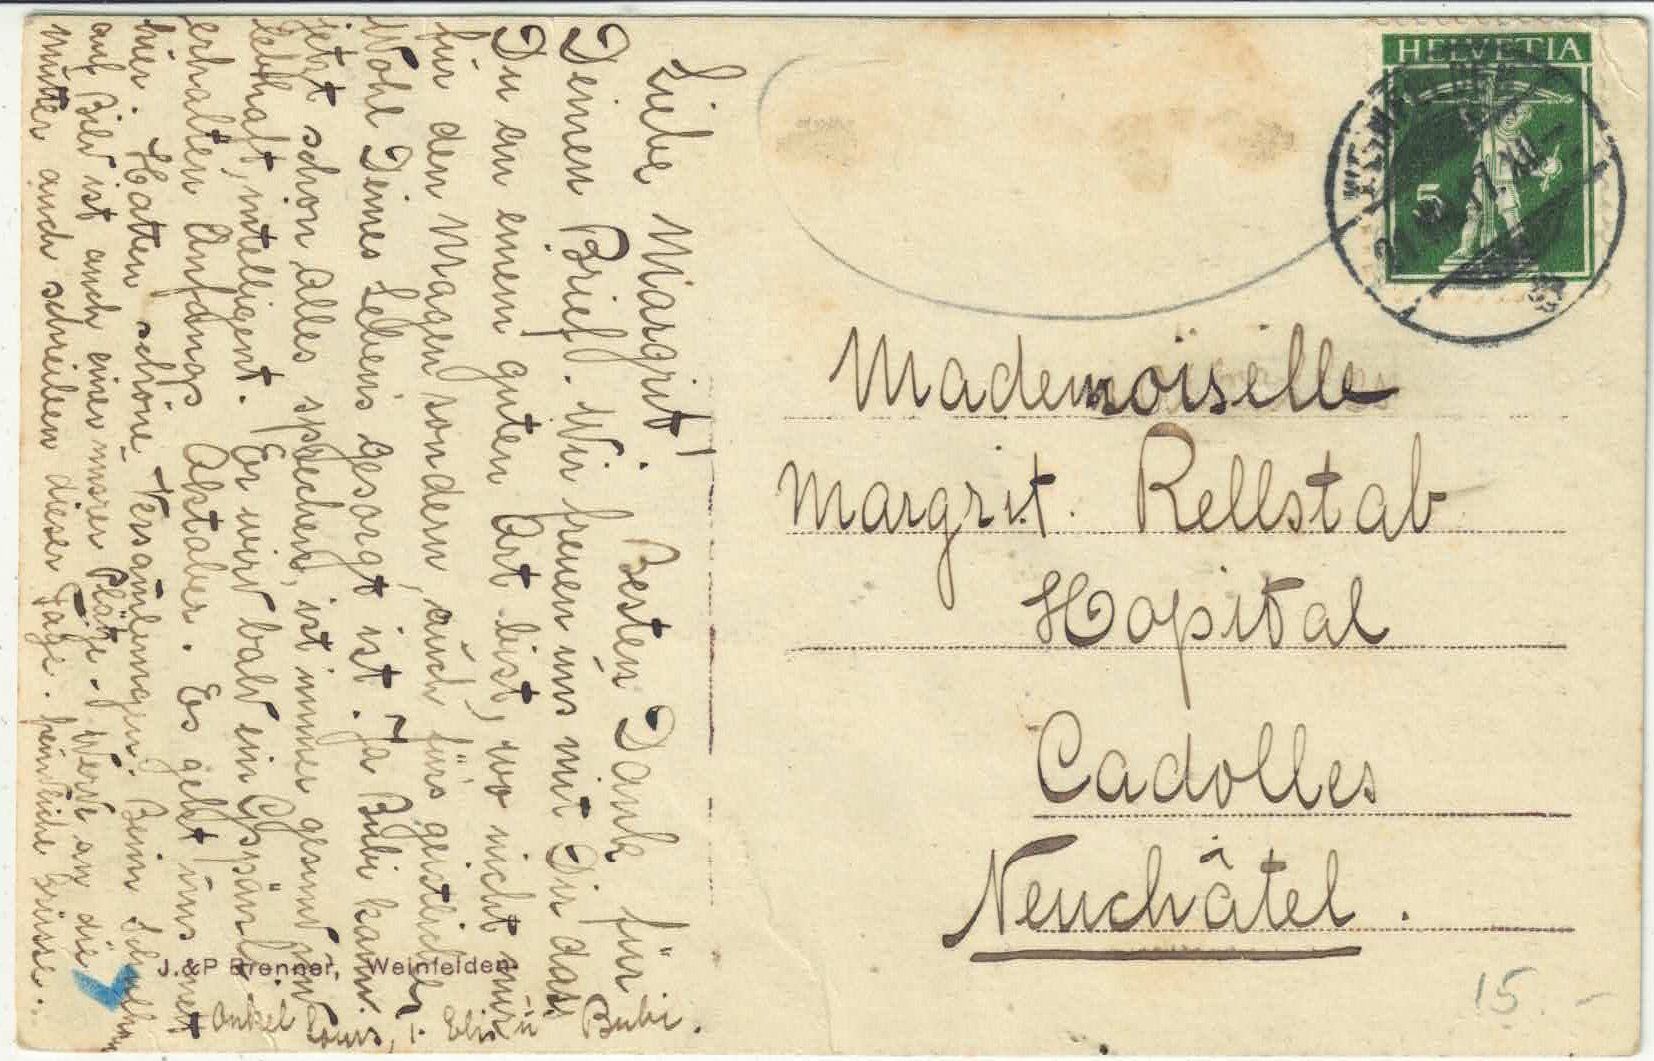 Liebe Margrit! Besten Dank für
Deinen Brief. Wir freuen uns mit Dir das
Du an einem guten Ort bist, wo nicht nur
für den Magen sondern, auch für's geistliche
Wohl Deines Lebens gesorgt ist. Ja Bubi kann
jetzt schon alles sprechen, ist immer gesund
lebhaft, intelligent. Er wird bald ein Gspänli
erhalten Anfangs Oktober. Es geht uns nett
hier. Hatten schöne Versamlungen. Beim
auf Bild ist auch einer unsrer Plätze. Werde an die
mutter auch schreiben dieser Tage. herzliche Grüsse:
Onkel Louis, T. Elis u Bubi.
J. & P Brenner, Weinfelden
HELVETIA
5
WEINFELDEN
Mademoiselle
Margrit. Rellstab
Hopital
Cadolles
Neuchâtel.
15.-